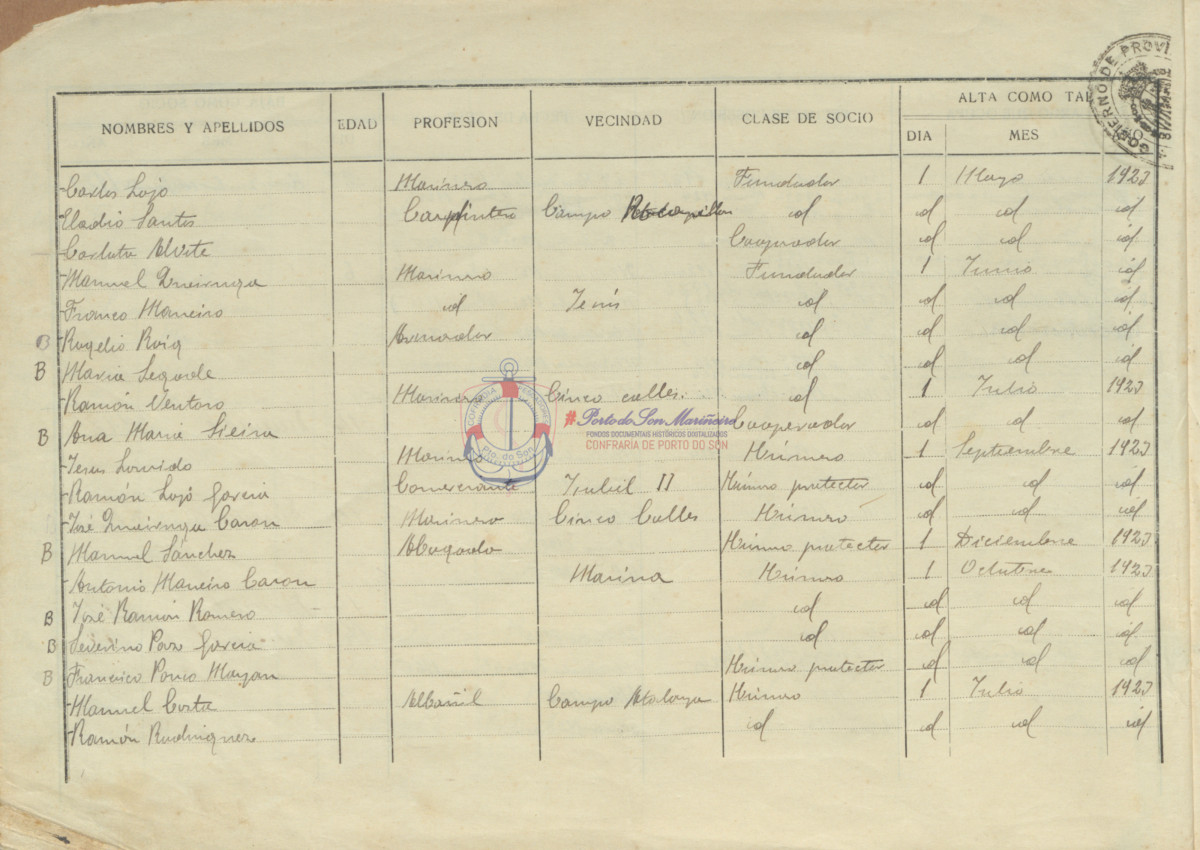 ALTA COMO TAL
NOMBRES Y APELLIDOS EDAD PROFESION VECINDAD CLASE DE SOCIO DIA MES
GOBIERNO DE PROVI
-Carlos Lojo Marinero Fundador 1 Mayo 1923
-Eladio Santos Carpintero Campo id id id id
-Carlota Alvite Cooperador id id id
-Manuel Queiruga Marinero Fundador 1 Junio id
-Franco Maneiro id id id id id
B -Rogelio Roig Armador id id id id
B -Maria Segade id id id id
-Ramón Ventoso Marinero Cinco calles. id 1 Julio 1923
B -Ana Maria Sieira Cooperador id id id
-Jesus Lourido Marinero Número 1 Septiembre 1923
-Ramón Lojo Garcia Comerciante Isabel II Número protector id id id
-José Queiruga Caron Marinero Cinco Calles Número id id id
B -Manuel Sánchez Abogado Número protector 1 Diciembre 1923
-Antonio Maneiro Caron Marina Número 1 Octubre 1923
B -José Ramón Romero id id id id
B -Severino Paz Garcia id id id id
B -Francisco Ponco Mayan Número protector id id id
-Manuel Costa Albañil Campo Atalaya Número 1 Julio 1923
-Ramón Rodriguez id id id id
COFRADIA PESCADORES
Pto. do Son
#Porto do Son Mariñeiro
FONDOS DOCUMENTAIS HISTÓRICOS DIXITALIZADOS
CONFRARÍA DE PORTO DO SON